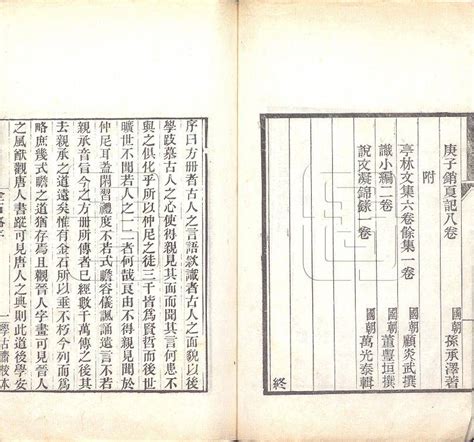 庚子銷夏記八卷 國朝孫承澤著
附
亭林文集六卷餘集一卷 國朝顧炎武撰
識小編二卷 國朝董豐垣撰
說文凝錦錄一卷 國朝萬光泰輯
終
序曰方冊者古人之言語款識者古人之面貌以後
學跂慕古人之心使得親見其面而聞其言何患不
與之俱化乎所以仲尼之徒三千皆爲賢哲而後世
曠世不聞若人之一二者何哉良由不得親見聞於
仲尼耳蓋閑習禮度不若式瞻容儀諷誦遺言不若
親承音旨今之方冊所傳者已經數千萬傳之後其
去親承之道遠矣惟有金石所以垂不朽今列而爲
略庶幾式瞻之道猶存焉且觀晉人字畫可見晉人
之風猷觀唐人書蹤可見唐人之典則此道後學安
一 學古齋校本